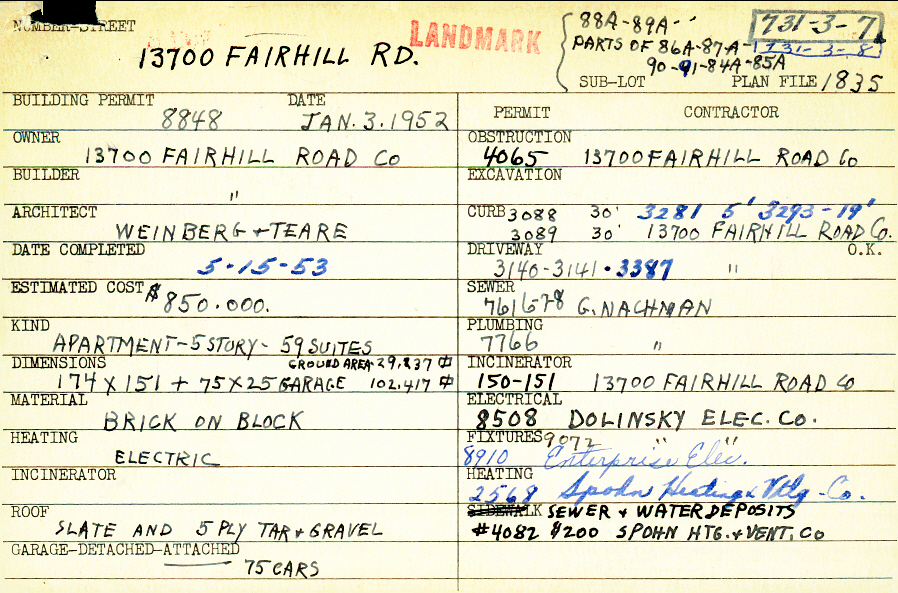 NUMBER-STREET
13700 FAIRHILL RD.
LANDMARK
88A-89A-
PARTS OF 86A-87A-
90-91-84A-85A
731-3-7
731-3-8
SUB-LOT PLAN FILE 1835
BUILDING PERMIT DATE
8848 JAN. 3. 1952
OWNER
13700 FAIRHILL ROAD CO
BUILDER
"
ARCHITECT
WEINBERG + TEARE
DATE COMPLETED
5-15-53
ESTIMATED COST $850.000.
KIND
APARTMENT-5 STORY- 59 SUITES
DIMENSIONS GROUND AREA 29,237
174 X 151 + 75 X 25 GARAGE 102,417
MATERIAL
BRICK ON BLOCK
HEATING
ELECTRIC
INCINERATOR
ROOF
SLATE AND 5 PLY TAR + GRAVEL
GARAGE-DETACHED-ATTACHED
75 CARS
PERMIT CONTRACTOR
OBSTRUCTION
4065 13700 FAIRHILL ROAD CO
EXCAVATION
CURB 3088 30' 3281 5' 3293-19'
3089 30' 13700 FAIRHILL ROAD CO.
DRIVEWAY O.K.
3140-3141-3387 "
SEWER
761678 G. NACHMAN
PLUMBING
7766 "
INCINERATOR
150-151 13700 FAIRHILL ROAD CO
ELECTRICAL
8508 DOLINSKY ELEC. CO.
FIXTURES 9072 " "
8910 Enterprise Elec.
HEATING
2568 Spohn Heating & Vtlg. Co.
SIDEWALK SEWER + WATER DEPOSITS
#4082 $200 SPOHN HTG. + VENT. CO